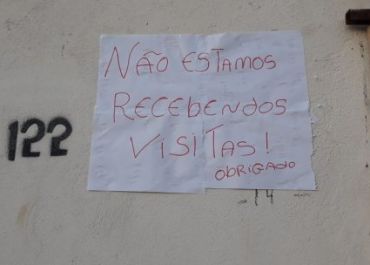 122
NÃO ESTAMOS
RECEBENDOS
VISITAS!
OBRIGADO